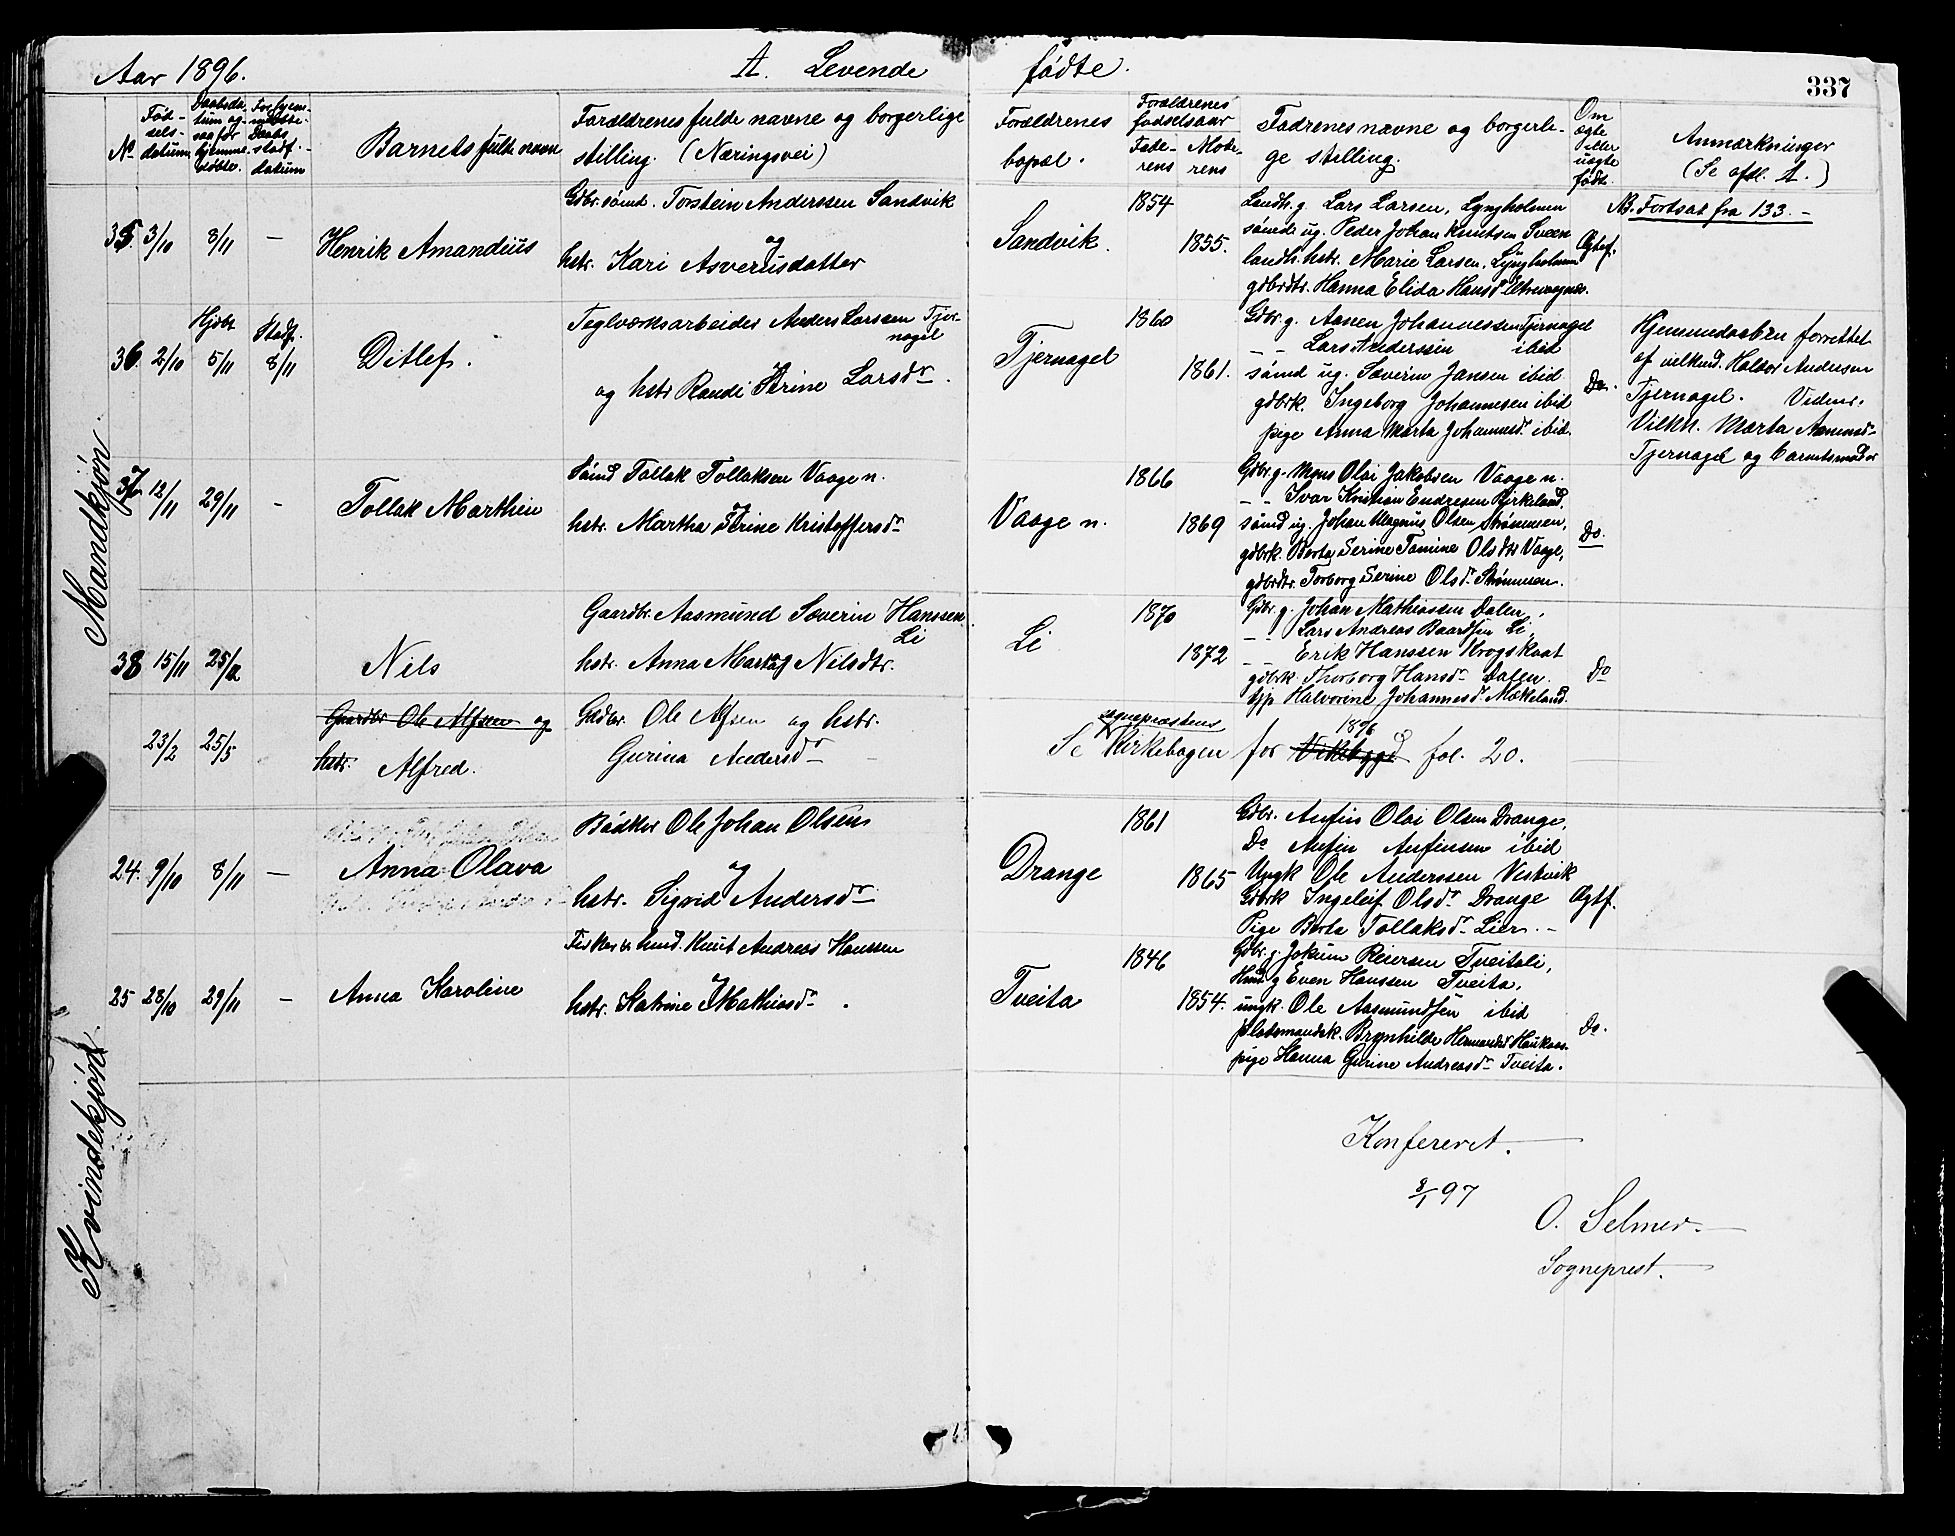 Aar 1896. A. Levende fødte. 337
No Fød-sels-datum. Daabsdatum og-saa for hjemmedøbte. For hjemmedøbte Daabs stadf.-datum Barnets fulde navn Forældrenes fulde navne og borgerlige stilling. (Næringsvei) Forældrenes bopæl. Forældrenes fødselsaar Fade-rens Mode-rens Fadrenes navne og borgerli-ge stilling. Om ægte eller uægte født. Anmærkninger (Se afdl. A.)
Mandkjøn.
35. 3/10 8/11 — Henrik Amandeus
Gdbr. sømd. Torstein Anderssen Sandvik
og
hstr. Kari Asverusdatter
Sandvik. 1854 1855.
Landh. g. Lars Larsen, Lyngholmen
sømd ug. Peder Johan Knutsen Sveen
landh. hstr. Marie Larsen, Lyngholmen
gdbrdtr. Hanna Elida Hansd.
Ægtef.
NB. Fortsat fra 133. —
36. 2/10 Hjdbt 5/11 Stadf. 8/11 Ditlef.
Teglværksarbeider Anders Larssen Tjer-
nagel
og hstr Randi Strine Larsdr.
Tjernagel 1860 1861.
Gdbr. g. Aanen Johannessen Tjernagel
— — Lars Anderssen ibid
sømd ug. Severin Jansen ibid
gdbrk. Ingeborg Johannesen ibid
pige Anna Marta Johannesd. ibid.
Do.
Hjemmedaaben forrettet
af vilkmd. Haldor Andersen
Tjernagel. Vidner:
Vilkk. Marta Aamundsdr
Tjernagel og barnets moder
37. 12/11 29/11 - Tollak Marthin
Sømd Tollak Tollaksen Vaage n.
og
hstr. Martha Strine Kristoffersdr
Vaage n. 1866 1869
Gdbr. g. Mons Olai Jakobsen Vaage n.
— — Ivar Kristian Endresen Birkeland,
sømd ug. Johan Magnus Olsen Strømmen,
gdbrk. Berta Serine Tomine Olsdtr Vaage,
gdbrdtr. Torborg Serine Olsdr Strømmen.
Do.
38 15/11 25/12 Nils
Gaardbr. Aasmund Severin Hanssen
Li
hstr. Anna Marta Nilsdtr.
Li 1870 1872
Gdbr. g. Johan Mathiassen Dalen,
— — Lars Andreas Baardsen Li,
— — Erik Hanssen Krogskaat
gdbrk. Thorborg Hansdr Dalen.
tjp Halvorine Johannesdr Mækeland.
Do
Gaardbr Ole Alfsen og
23/2 25/5 hstr. Alfred.
Gdbr. Ole Alfsen og hstr.
Gurina Andersdr —
sognepræstens 1896
Se Kirkebogen for Vikebygd fol. 20.
Kvindekjøn.
24. 9/10 8/11 — Anna Olava
Bødker Ole Johan Olsen
og
hstr. Sigrid Andersdr
Drange 1861 1865
Gdbr. Anfin Olai Olsen Drange,
Do Anfin Anfinsen ibid
Ungk Ole Anderssen Vestvik
Gdbrk Ingeleif Olsdr Drange
Pige Berta Tollaksdr Lier. —
Ægtf.
25 28/10 29/11 — Anna Karoline
Fisker br husd. Knut Andreas Hanssen
og
hstr. Katrine Mathiasdr.
Tveita 1846 1854.
Gdbr. g. Jokum Reiersen Tveitali,
Hmd g Even Hanssen Tveita,
ungk. Ole Aasmundsen ibid
pladsmandsk. Brynhilde Hermandsd Haukaas.
pige Hanna Gurine Andreasdr Tveita.
Do.
Konfereret.
8/1 97
O. Selmer.
Sogneprest.